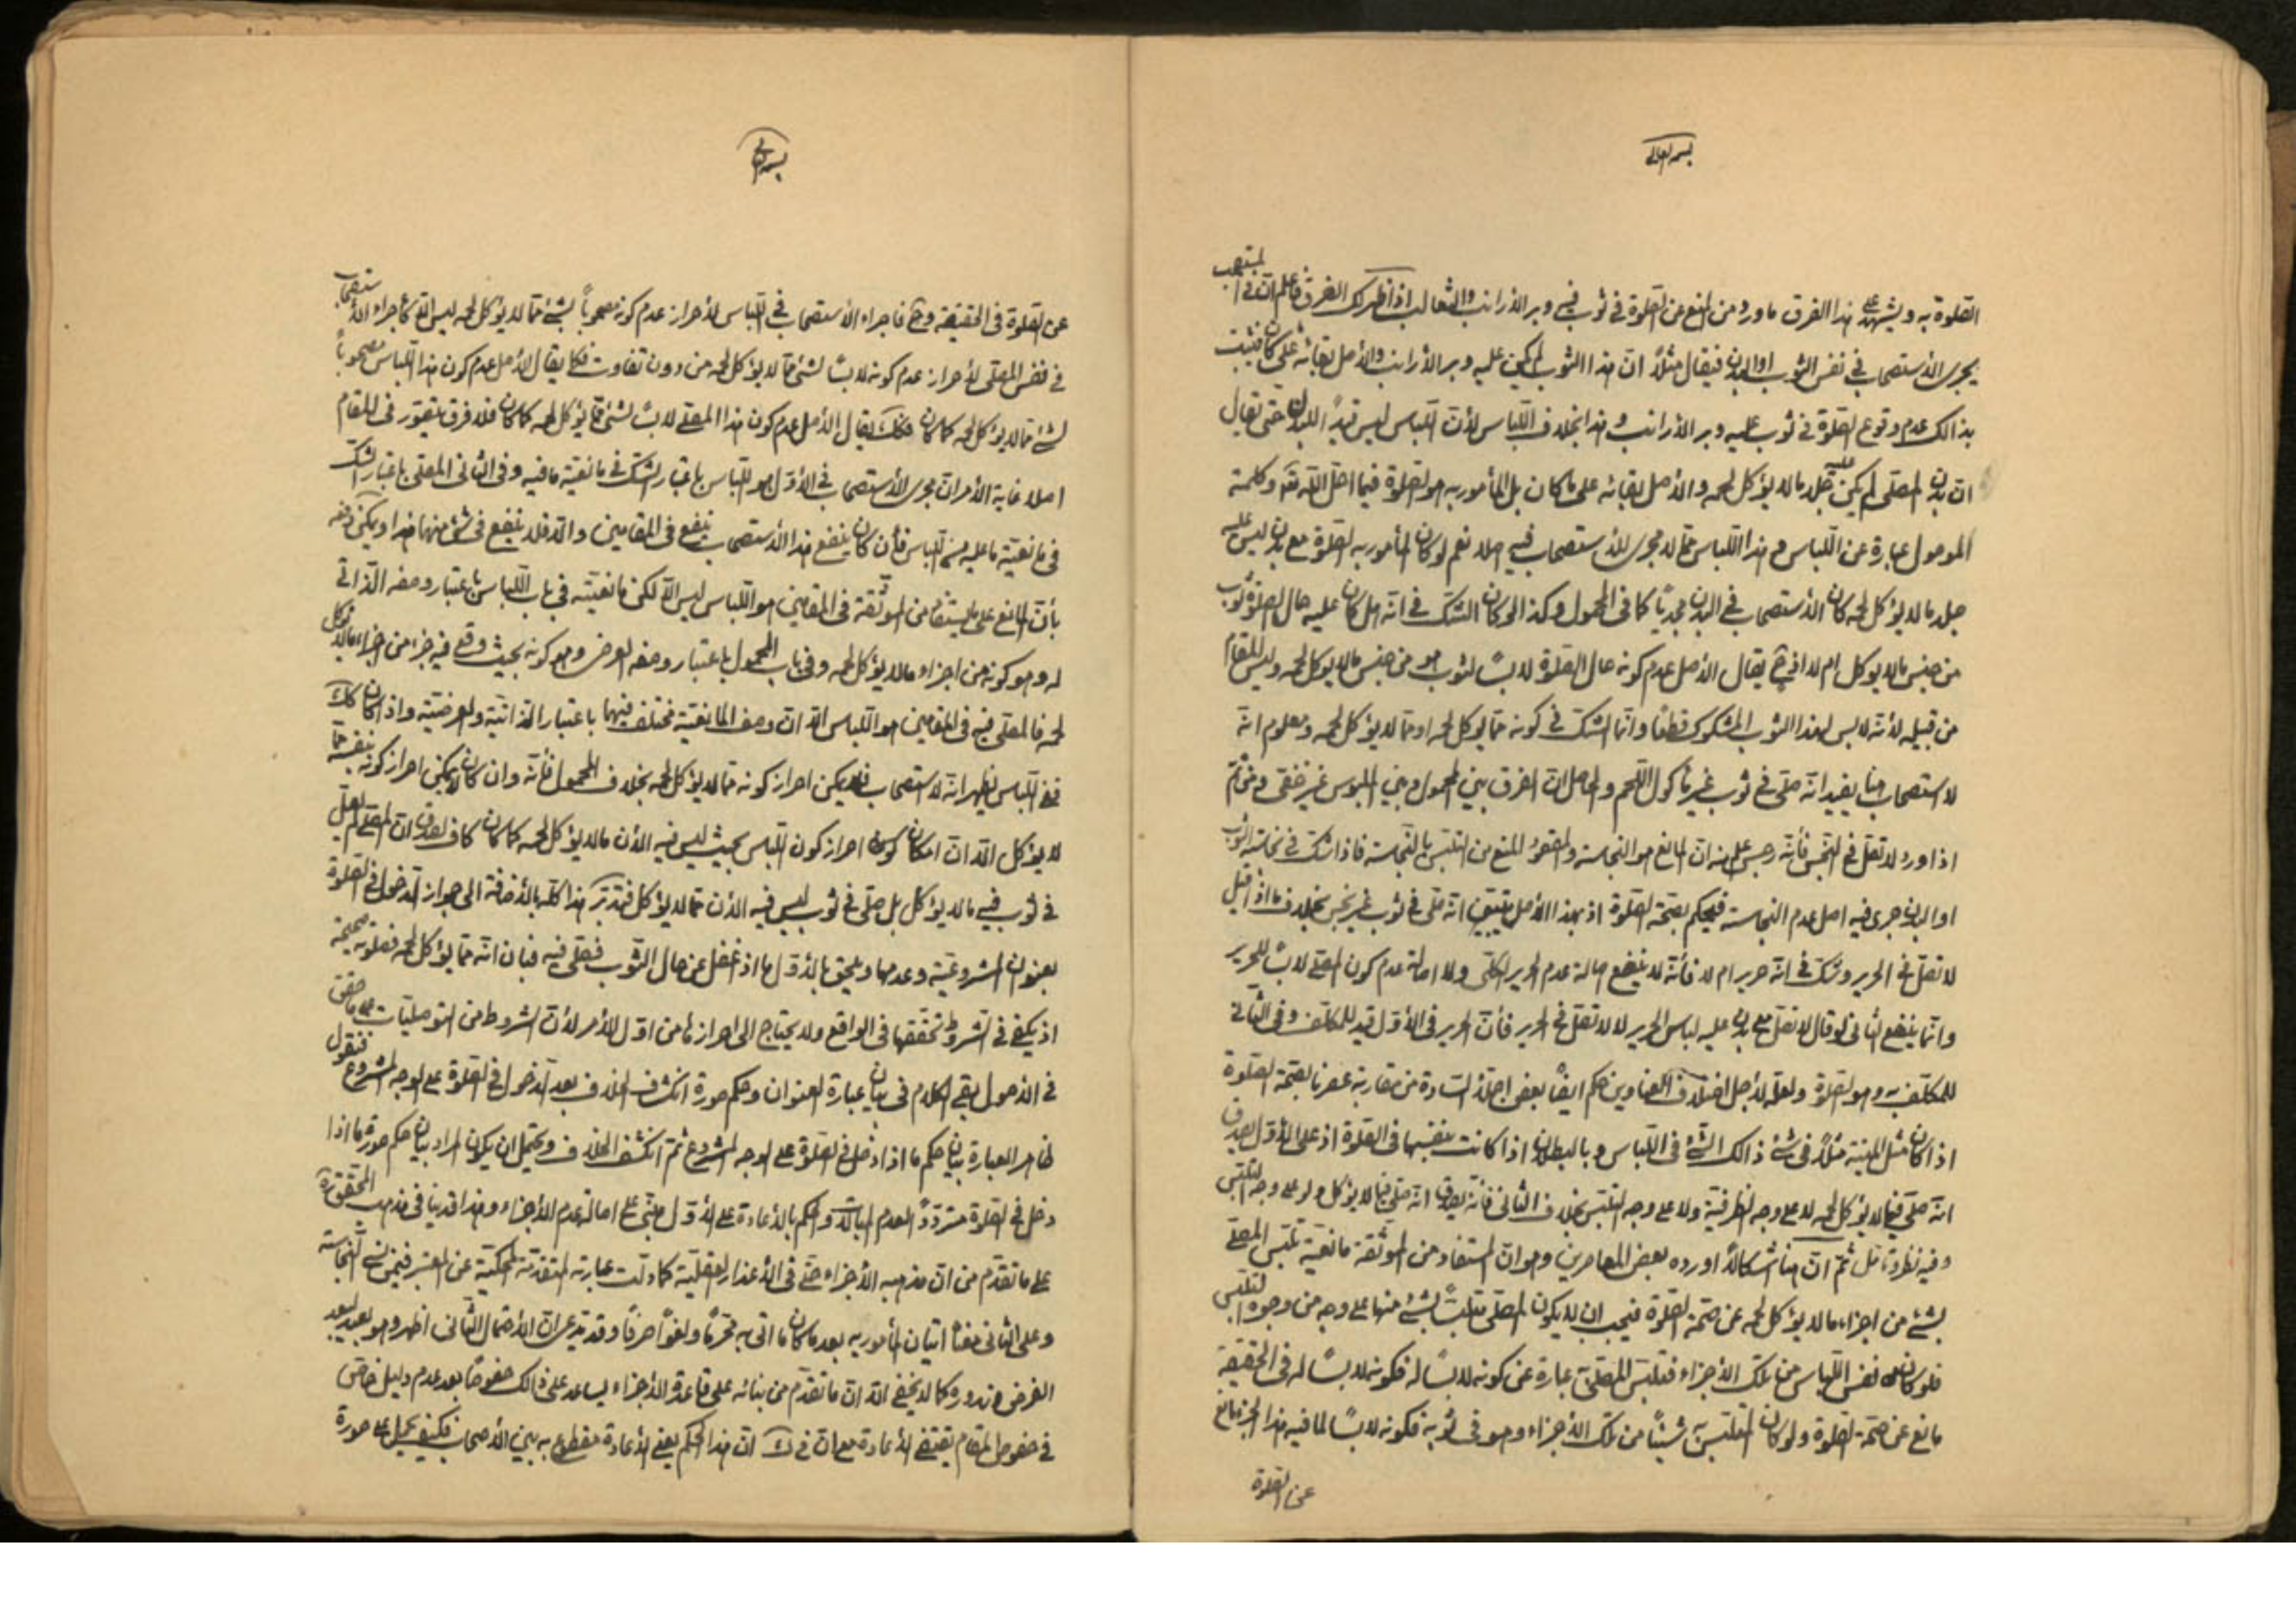 بسمه تعالى
الصلوة به ويشهد على هذا الفرق ما ورد من المنع عن الصلوة فى ثوب فيه وبر الارانب والثعالب اذا ظهر لك الفرق فاعلم ان فى المستصحب
يجرى الاستصحاب فى نفس الثوب او البدن فيقال مثلاً ان هذا الثوب لم يكن عليه وبر الارانب والاصل بقائه على ما كان فيثبت
بذالك عدم وقوع الصلوة فى ثوب عليه وبر الارانب وهذا بخلاف اللباس لأن اللباس ليس قيداً للبدن حتى يقال
ان بدن المصلى لم يكن عليه جلد مالا يؤكل لحمه والأصل بقائه على ما كان بل المأمور به هو الصلوة فيما احل الله وكلمة
الموصول عبارة عن اللباس وهذا اللباس مما لا مجرى للاستصحاب فيه اصلا نعم لو كان المأمور به الصلوة مع بدن ليس عليه
جلد مالا يؤكل لحمه كان الاستصحاب فى البدن مجدياً كما فى المحمول وكذا لو كان الشك فى انه هل كان عليه حال الصلوة ثوب
من جنس مالا يوكل ام لا اذ ح يقال الأصل عدم كونه حال الصلوة لابساً لثوب هو من جنس مالا يوكل لحمه وليس المقام
من قبيله لأنه لابس لهذا الثوب المشكوك قطعاً وانما الشك فى كونه مما يوكل لحمه او مما لا يؤكل لحمه ومعلوم انه
لا استصحاب هنا يفيد انه صلى فى ثوب غير مأكول اللحم والحاصل ان الفرق بين المحمول وبين الملبوس غير خفى ومن ثم
اذا ورد لا تصل فى النجس فأنه رجس علم منه ان المانع هو النجاسة والمقصود المنع من التلبس بالنجاسة فاذا شك فى نجاسة الثوب
او البدن جرى فيه اصل عدم النجاسة فيحكم بصحة الصلوة اذ بهذا الأصل يتبين انه صلى فى ثوب غير نجس بخلاف ما اذا قيل
لا تصل فى الحرير وشك فى انه حرير ام لا فأنه لا ينفع اصالة عدم الحرير الكلى ولا اصالة عدم كون المصلى لابساً للحرير
وانما ينفع الثانى لو قال لا تصل مع بدن عليه لباس الحرير لا لا تصل فى الحرير فأن الحرير فى الأول قيد للمكلف وفى الثانى
للمكلف به وهو الصلوة ولعله لأجل اختلاف العناوين حكم ايضاً بعض اجلة السادة من مقاربى عصرنا بصحة الصلوة
اذا كان مثل الميتة مثلاً فى شئ ذالك الشئ فى اللباس وبالبطلان اذا كانت بنفسها فى الصلوة اذ على الأول لا يصدق
انه صلى فيما لا يؤكل لحمه لا على وجه الظرفية ولا على وجه التلبس بخلاف الثانى فأنه يصدق انه صلى فيما لا يؤكل ولو على وجه التلبس
وفيه نظر وتأمل ثم ان هنا اشكالاً اورده بعض المعاصرين وهو ان المستفاد من الموثقة مانعية تلبس المصلى
بشئ من اجزاء مالا يؤكل لحمه عن صحة الصلوة فيجب ان لا يكون المصلى متلبساً بشئ منها على وجه من وجوه التلبس
فلو كان نفس اللباس من تلك الأجزاء فتلبس المصلى عبارة عن كونه لابساً له فكونه لابساً له فى الحقيقة
مانع عن صحة الصلوة ولو كان المتلبس به شيئاً من تلك الأجزاء وهو فى ثوبه فكونه لابساً لما فيه هذا الجزء مانع
عن الصلوة
بسمه تعالى
عن الصلوة فى الحقيقة وح فاجراء الاستصحاب فى اللباس لأحراز عدم كونه مصحوباً بشئ مما لا يؤكل لحمه ليس الا كأجراء الأستصحاب
فى نفس المصلى لأحراز عدم كونه لابساً لشئ مما لا يؤكل لحمه من دون تفاوت فكما يقال الأصل عدم كون هذا اللباس مصحوباً
لشئ مما لا يؤكل لحمه كما كان فكك يقال الأصل عدم كون هذا المصلى لابساً لشئ مما لا يؤكل لحمه كما كان فلا فرق يتصور فى المقام
اصلا غاية الأمر ان مجرى الأستصحاب فى الأول هو اللباس باعتبار الشك فى مانعية ما فيه وفى الثانى المصلى باعتبار الشك
فى مانعية ما عليه من اللباس فأن كان ينفع هذا الأستصحاب ينفع فى المقامين والا فلا ينفع فى شئ منهما هذا ويمكن دفعه
بأن المانع على ما يستفاد من الموثقة فى المقامين هو اللباس ليس الا لكن مانعيته فى باب اللباس باعتبار وصفه الذاتى
له وهو كونه من اجزاء مالا يؤكل لحمه وفى باب المحمول باعتبار وصفه العرضى وهو كونه بحيث وقع فيه جزء من اجزاء مالا يؤكل
لحمه فالمصلى فيه فى المقامين هو اللباس الا ان وصف المانعية مختلف فيهما باعتبار الذاتية والعرضية واذا كان كك
ففى اللباس يظهر انه لا استصحاب فلا يمكن احراز كونه مما لا يؤكل لحمه بخلاف المحمول فأنه وان كان لا يمكن احراز كونه بنفسه مما
لا يؤكل الا ان امكان احراز كون اللباس بحيث ليس فيه الأن مالا يؤكل لحمه كما كان كاف لصدق ان المصلى لم يصل
فى ثوب فيه مالا يؤكل بل صلى فى ثوب ليس فيه الأن مما لا يؤكل فتدبر هذا كله بالأضافة الى جواز الدخول فى الصلوة
بعنوان المشروعية وعدمها ويلحق بالأول ما اذا غفل عن حال الثوب فصلى فيه فبان انه مما يؤكل لحمه فصلوته صحيحة
اذ يكفى فى الشروط تحققها فى الواقع ولا يحتاج الى احرازها من اول الأمر لأن الشروط من التوصليات على ما حقق
فى الأصول بقى الكلام فى بيان عبارة العنوان وحكم صورة انكشاف الخلاف بعد الدخول فى الصلوة على الوجه المشروع فنقول
ظاهر العبارة بيان حكم ما اذا دخل فى الصلوة على الوجه المشروع ثم انكشف الخلاف ويحتمل ان يكون المراد بيان حكم صورة ما اذا
دخل فى الصلوة متردداً لعدم المبالات والحكم بالأعادة على الأول مبنى على اصالة عدم الأجزاء وهذا قد ينافى مذهب المحقق ره
على ما تقدم من ان مذهبه الأجزاء حتى فى الأعذار العقلية كما دلت عبارته المتقدمة المحكية عن المعتبر فيمن نسى النجاسة
وعلى الثانى اتيان المأمور به بعد ما كان ما اتى به محرماً ولغواً صرفاً وقد يدعى ان الأحتمال الثانى اظهر وهو بعيد لبعد
الفرض وندوره كما لا يخفى الا ان ما تقدم من بنائه على قاعدة الأجزاء يساعد على ذالك خصوصاً بعد عدم دليل خاص
فى خصوص المقام يقتضى الأعادة مع ان فى ان هذا الحكم يعنى الأعادة مقطوع به بين الأصحاب فكيف يحمل على صورة